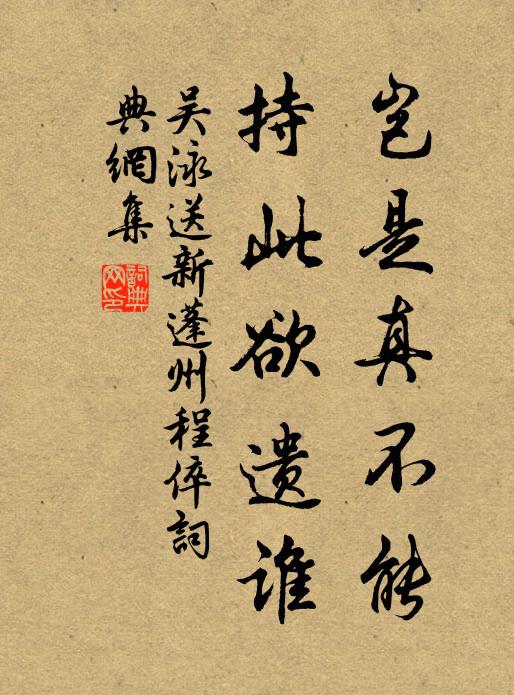 岂是真不能
持此欲遗谁
吴泳送新蓬州程倅詞
典網集
詞典网印